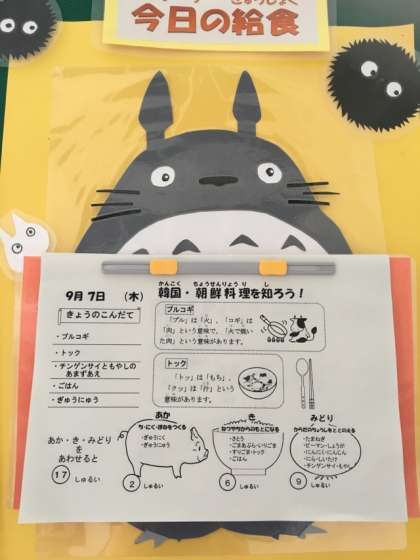 きゅうしょく
今日の給食
9月7日 (木)
きょうのこんだて
・プルコギ
・トック
・チンゲンサイともやしの
あまずあえ
・ごはん
・ぎゅうにゅう
かんこく ちょうせんりょうり し
韓国・朝鮮料理を知ろう!
プルコギ
「プル」は「火」、「コギ」は
「肉」という意味で、「火で焼い
た肉」という意味があります。
トック
「トッ」は「もち」、
「クッ」は「汁」とい
う意味があります。
あか・き・みどり
を
あわせると
17 しゅるい
あか
ち・にく・ほねをつくる
・ぎゅうにく
・ぎゅうにゅう
2 しゅるい
き
ねつやちからのもとになる
・さとう
・ごまあぶら・いりごま
・すりごま・トック
・ごはん
6 しゅるい
みどり
からだのちょうしをととのえる
・たまねぎ
・ピーマン・しょうが
・にんにく・にんじん
・にら・しいたけ
・チンゲンサイ・もやし
9 しゅるい